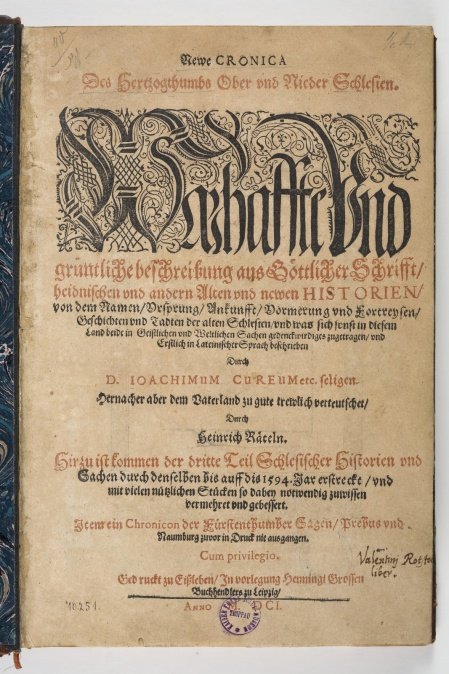 Newe CRONICA
Des Hertzogthumbs Ober vnd Nieder Schlesien.
Warhaffte Vnd
gründtliche beschreibung aus Göttlicher Schrifft/
heidnischen vnd andern Alten vnd newen HISTORIEN/
von dem Namen/Vrsprung/Ankunfft/Vormerung vnd Fortreysen/
Geschichten vnd Tadten der alten Schlesien/vnd was sich sonst in diesem
Land beidt in Geistlichen vnd Weltlichen Sachen gedenckwirdiges zugetragen/vnd
Erstlich in Lateinischer Sprach beschrieben
Durch
D. IOACHIMUM CUREUM etc. seligen.
Hernacher aber dem Vaterland zu gute trewlich verteutschet/
Durch
Heinrich Räteln.
Hirzu ist kommen der dritte Teil Schlesischer Historien vnd
Sachen durch denselben bis auff dis 1594. Jar erstreckt/vnd
mit vielen nützlichen Stücken so dabey notwendig zuwissen
vermehret vnd gebessert.
Item ein Chronicon der Fürstenthumber Sagen/Prebus vnd
Naumburg zuvor in Druck nie ausgangen.
Cum privilegio.
Valentinj
liber.
Gedruckt zu Eißleben/In vorlegung Henningi Grossen
Buchhendlers zu Leipzig/
ANNO M. DCI.
TROPPAU